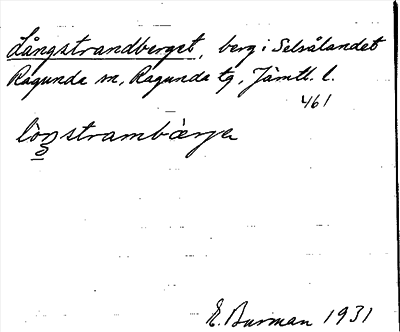 Långstrandberget, berg i Selsålandet
Ragunda sn, Ragunda tg, Jämtl. l.
461
E. Burman 1931